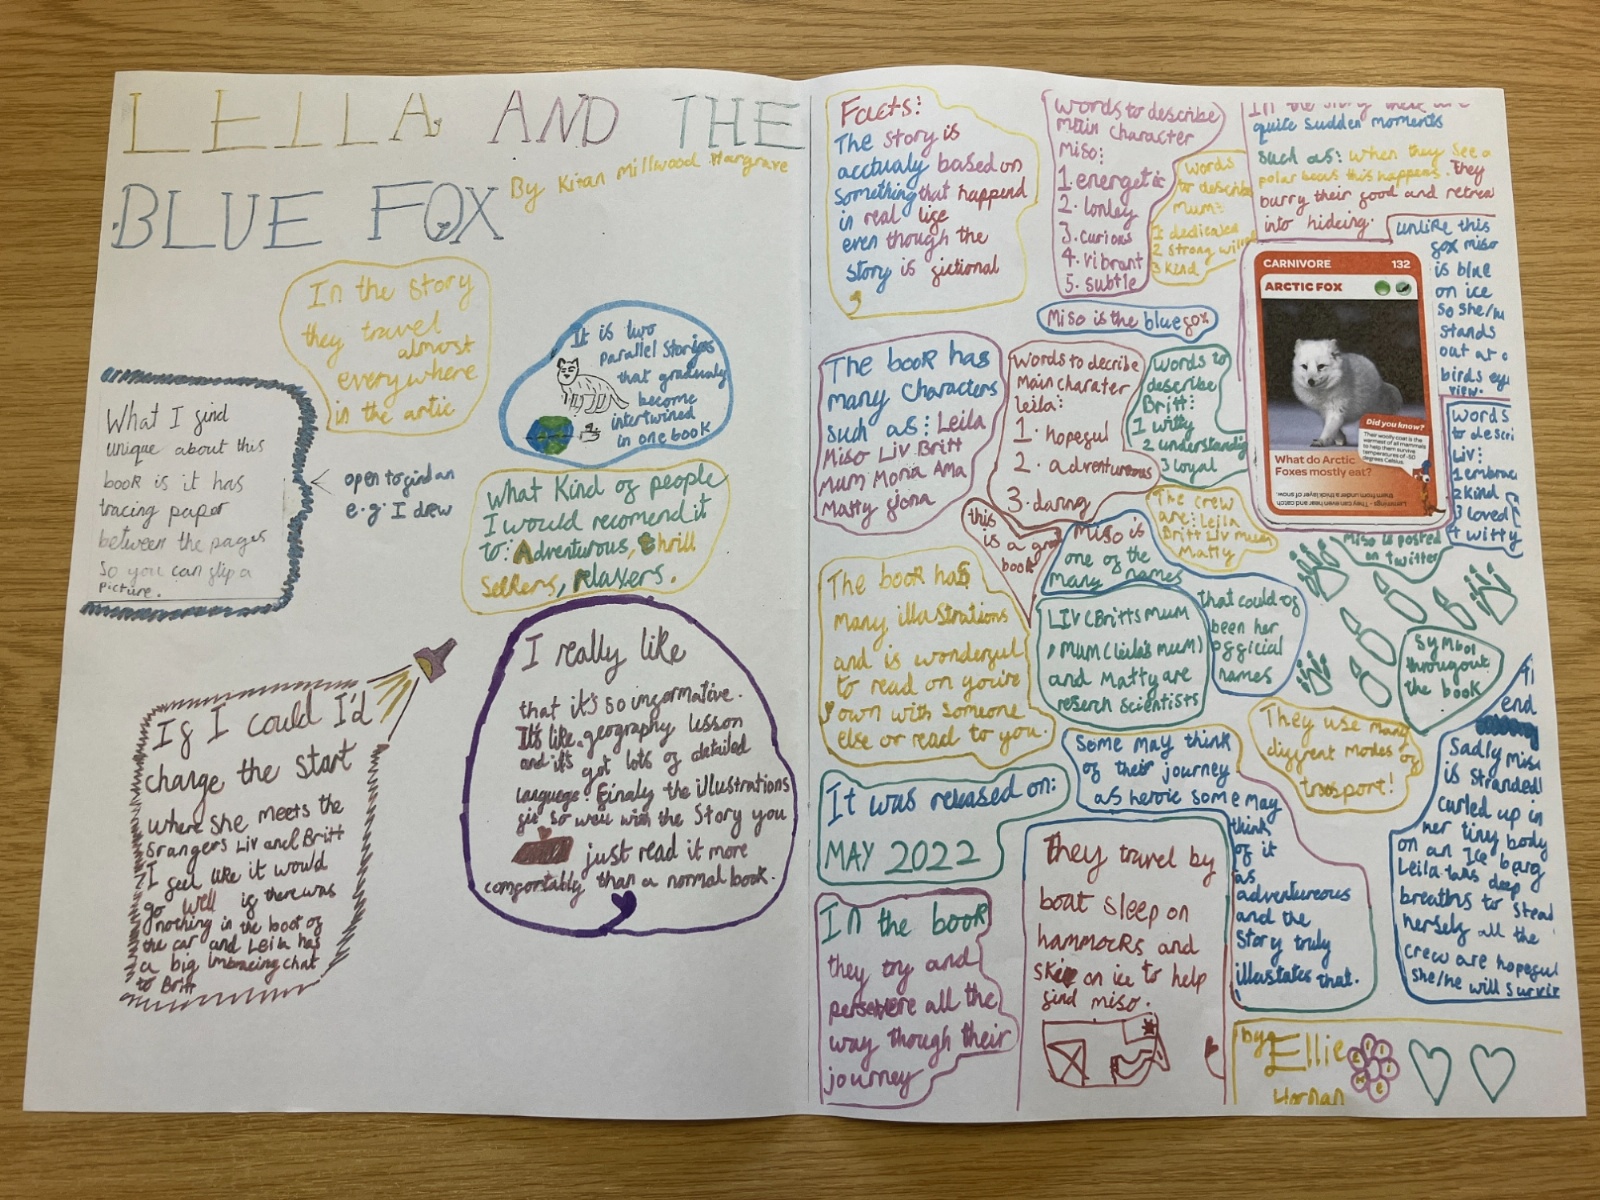 LEILA AND THE
BLUE FOX
By Kiran Millwood Hargrave
In the story
they travel
almost
everywhere
in the artic
It is two
parallel Storiges
that gradualy
become
intertwined
in one book
What I find
unique about this
book is it has
tracing paper
between the pages
So you can slip a
picture.
open to find an
e.g. I drew
what Kind of people
I would recomend it
to: Adventurous, thrill
seekers, relaxers.
I really like
that it's so informative.
It's like geography lesson
and it's got lots of detailed
language. Finaly the illustrations
fit so well with the Story you
just read it more
comfortably than a normal book.
If I could I'd
change the start
where she meets the
srangers Liv and Britt
I feel like it would
go well if there was
nothing in the boot of
the car and Leila has
a big imbracing chat
to Britt
Facts:
The story is
acctualy based on
something that happend
in real life
even though the
story is fictional
words to describe
main character
Miso:
1. energetic
2. lonley
3. curious
4. vibrant
5. subtle
words
to describe
Mum:
1 dedicated
2 strong
3 kind
In the story there are
quite sudden moments
such as: when they see a
polar bears this happens. they
burry their food and retrea
into hideing.
unlike this
fox miso
is blue
on ice
so she/
stands
out at a
birds eye
view.
CARNIVORE 132
ARCTIC FOX
Did you know?
Their woolly coat is the
warmest of all mammals
to help them survive
temperatures of -50
degrees Celsius.
What do Arctic
Foxes mostly eat?
Lemmings - They even hear and catch
them from under a thick layer of snow.
Miso is the blue fox
The book has
many Characters
such as: Leila
Miso Liv Britt
Mum Moria Ama
Matty fiona
words to decribe
Main charater
leila:
1. hopeful
2. adventureous
3. daring
words to
describe
Britt:
1 witty
2 understanding
3 loyal
words
to descri
Liv:
1 embrac
2 kind
3 loved
4 witty
this
is a
book
The crew
are: Leila
Britt Liv mum
Matty
Miso is posted
on twitter
Miso is
one of the
many names
that could of
been her
official
names
The book has
many illustrations
and is wonderful
to read on you're
own with someone
else or read to you.
LIV (Britts MUM
, MUM (leila's mum)
and Matty are
reserch scientists
Symbol
througout
the book
They use many
diffrent modes of
trasport!
It was released on:
MAY 2022
Some may think
of their journey
as heroic some may
think
of it
as
adventureous
and the
story truly
illustates that.
end
Sadly Miso
is stranded
curled up in
her tiny body
on an Ice barg
Leila taks deep
breaths to stead
herself all the
crew are hopeful
she/he will surviv
In the book
they try and
persevere all the
way though their
journey
They travel by
boat sleep on
hammocks and
skie on ice to help
find miso.
by:
Ellie